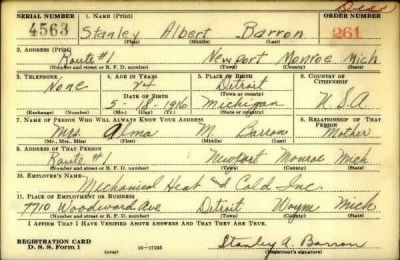 Dead
SERIAL NUMBER 1. NAME (Print) ORDER NUMBER
4563 Stanley Albert Barron 261
(First) (Middle) (Last)
2. ADDRESS (Print)
Route #1 Newport Monroe Mich
(Number and street or R. F. D. number) (Town) (County) (State)
3. TELEPHONE 4. AGE IN YEARS 5. PLACE OF BIRTH 6. COUNTRY OF CITIZENSHIP
None 24 Detroit
DATE OF BIRTH (Town or county)
5-18-1916 Michigan U.S.A.
(Exchange) (Number) (Mo.) (Day) (Yr.) (State or country)
7. NAME OF PERSON WHO WILL ALWAYS KNOW YOUR ADDRESS 8. RELATIONSHIP OF THAT PERSON
Mrs. Alma M. Barron Mother
(Mr., Mrs., Miss) (First) (Middle) (Last)
9. ADDRESS OF THAT PERSON
Route #1 Newport Monroe Mich.
(Number and street or R. F. D. number) (Town) (County) (State)
10. EMPLOYER'S NAME
Mechanical Heat and Cold Inc.
11. PLACE OF EMPLOYMENT OR BUSINESS
7710 Woodward Ave Detroit Wayne Mich
(Number and street or R. F. D. number) (Town) (County) (State)
I AFFIRM THAT I HAVE VERIFIED ABOVE ANSWERS AND THAT THEY ARE TRUE.
REGISTRATION CARD
D. S. S. Form 1 (over) Stanley A. Barron
(Registrant's signature)